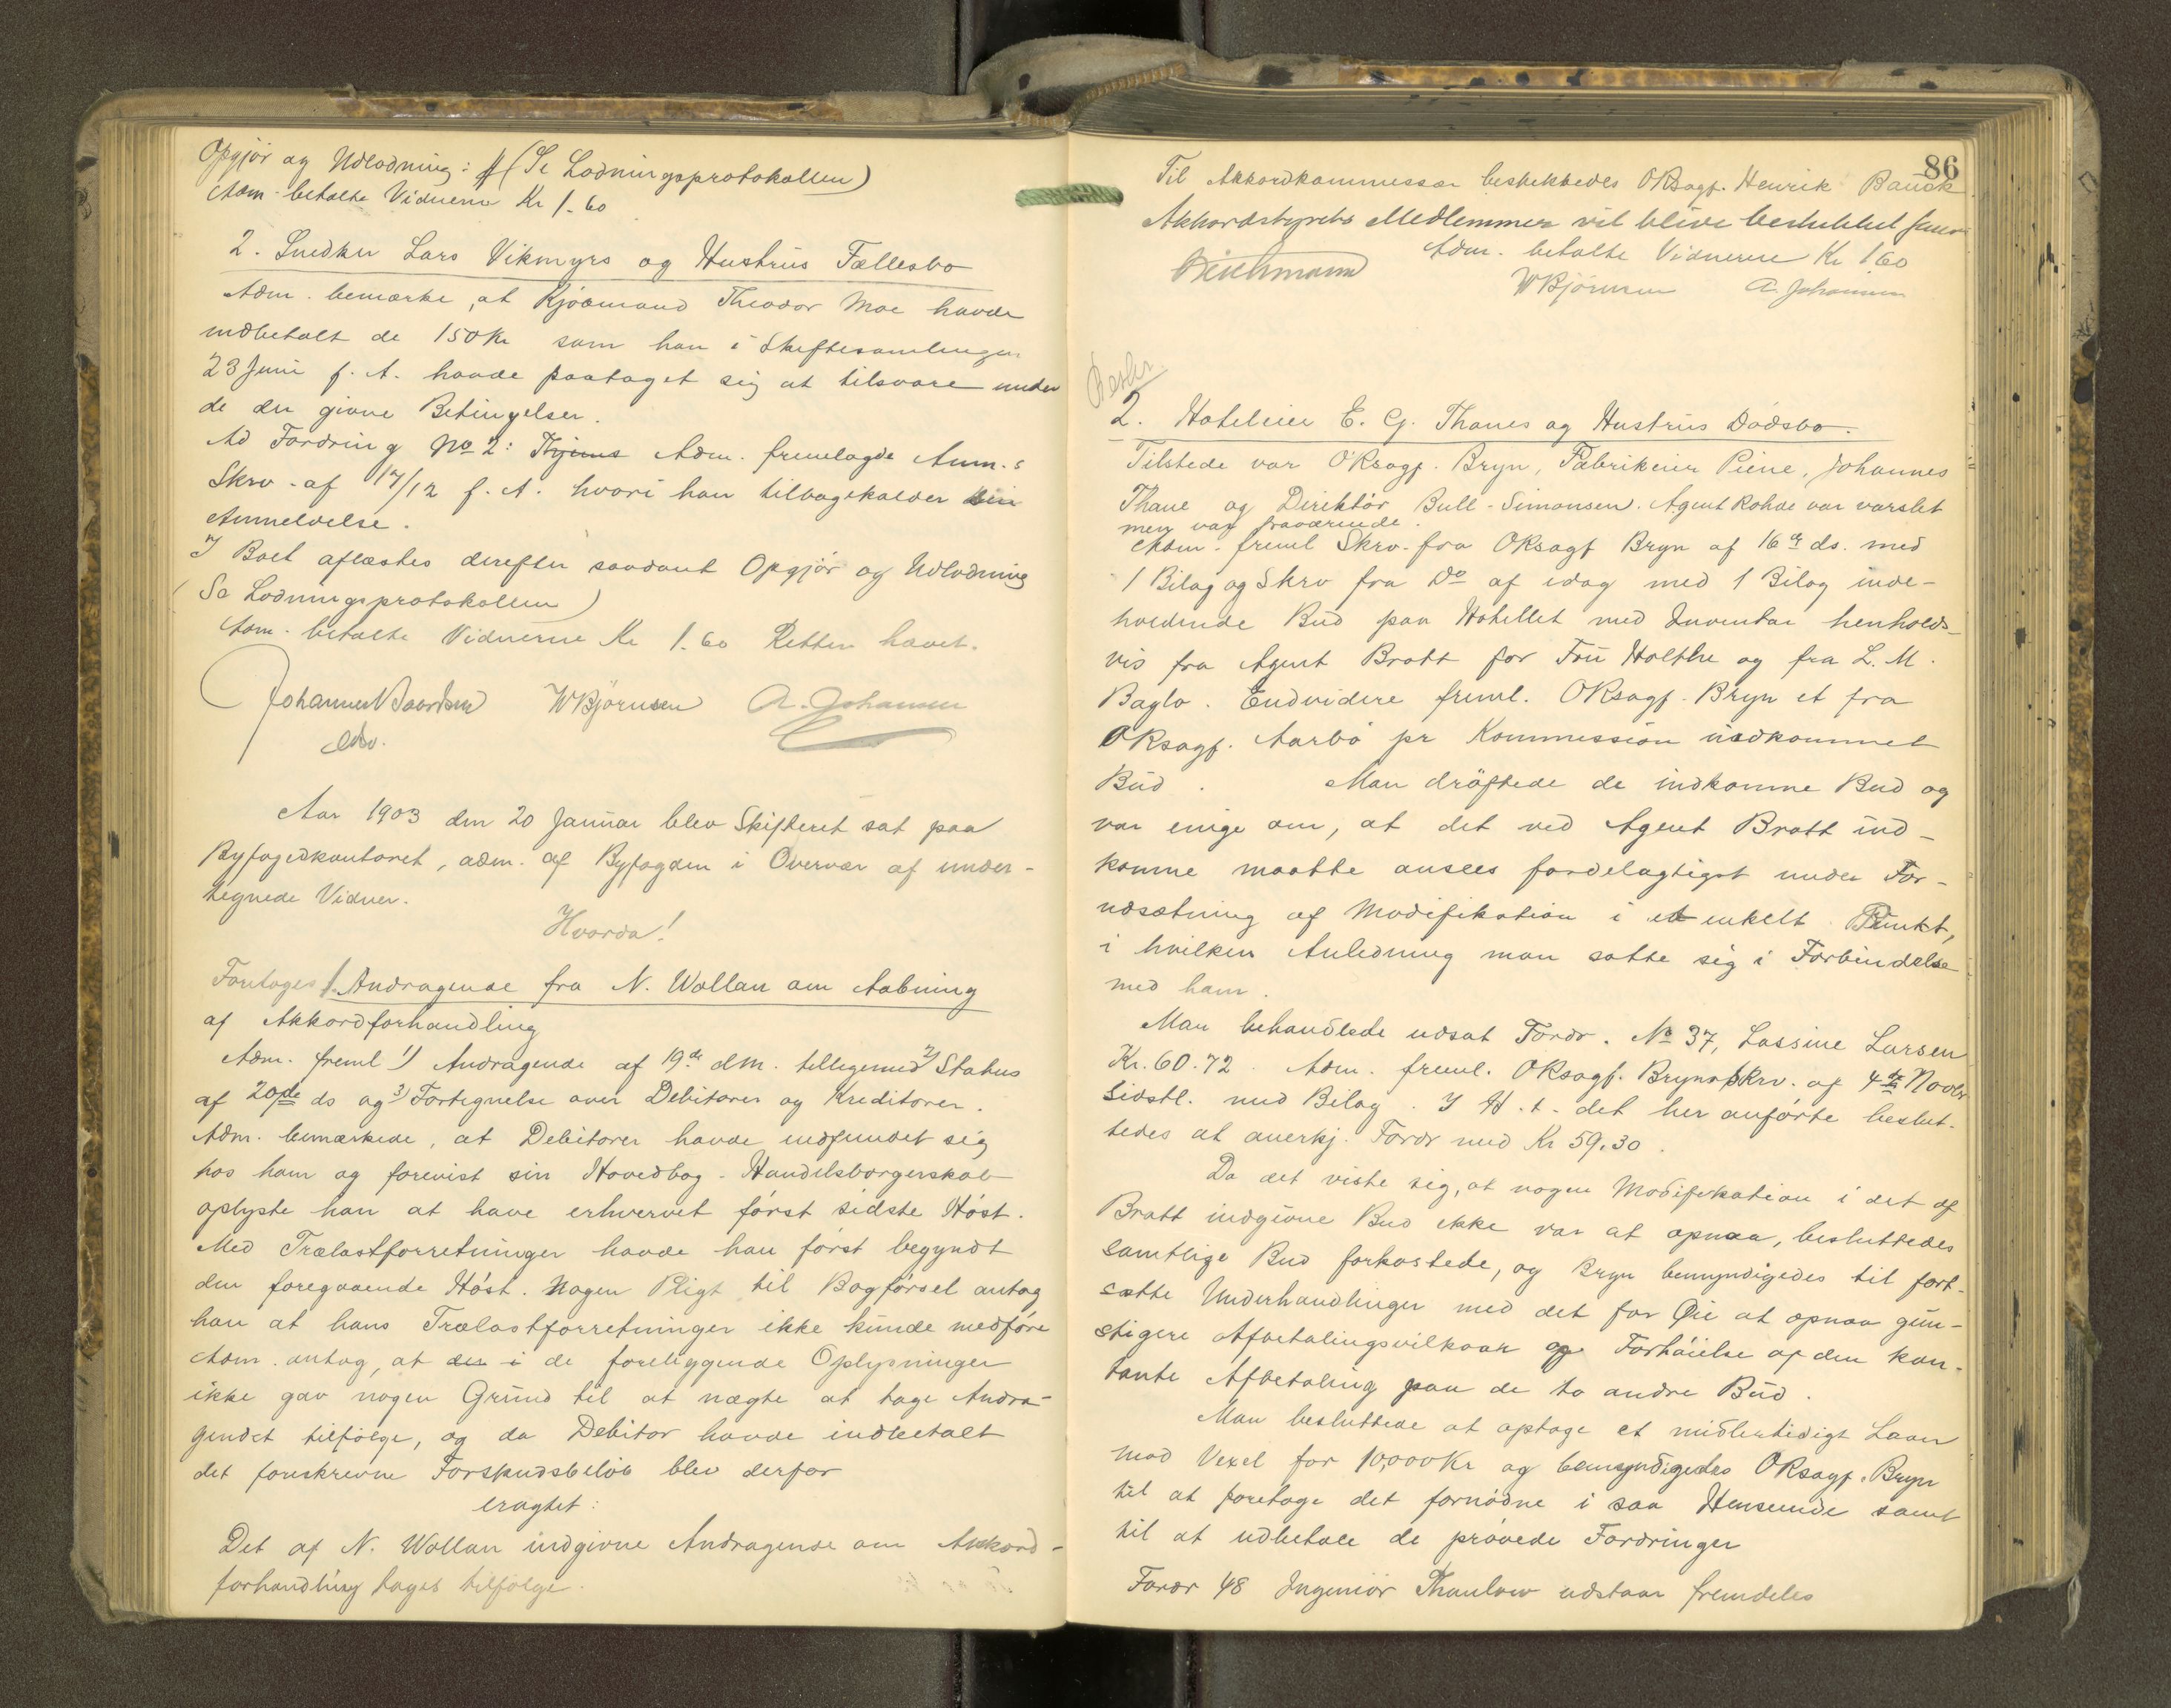 Opgjör og Udlodning: (Se Lodningsprotokollen)
Adm. betalte Vidnerne Kr 1.60
2. Snedker Lars Vikmyrs og Hustrus Fællesbo
Adm. bemærke, at Kjøbmand Theodor Moe havde
indbetalt de 150 Kr som han i Skiftesamlingen
23 Juni f. A. havde paataget sig at tilsvare under
de der givne Betingelser.
Ad Fordring No 2: Adm. fremlagde Anm.s
Skrv. af 17/12 f. A. hvori han tilbagekalder sin
Anmeldelse.
I Boet aflæstes derefter saadant Opgjör og Udlodning
(Se Lodningsprotokollen)
Adm. betalte Vidnerne Kr 1.60 Retten hævet.
WBjörnsen A. Johansen
Aar 1903 den 20 Januar blev Skifteret sat paa
Byfogedkontoret, adm. af Byfogden i Overvær af under-
tegnede Vidner.
Hvorda!
Foretages 1. Andragende fra N. Wollan om Aabning
af Akkordforhandling
Adm. freml 1) Andragende af 19de dm. tilligemed 2) Status
af 20de ds og 3) Fortegnelse over Debitorer og Kreditorer.
Adm. bemærkede, at Debitoren havde indfundet sig
hos ham og forevist sin Hovedbog. Handelsborgerskab
oplyste han at have erhvervet först sidste Höst.
Med Trælastforretninger havde han först begyndt
den foregaaende Höst. Nogen Pligt til Bogförsel antog
han at hans Trælastforretninger ikke kunde medföre
Adm. antog, at de foreliggende Oplysninger
ikke gav nogen Grund til at nægte at tage Andra-
gendet tilfölge, og da Debitor havde indbetalt
det foreskrevne Forskudsbelöb blev derfor
eragtet:
Det af N. Wollan indgivne Andragende om Akkord-
forhandling tages tilfölge.
86
Til Akkordkommissær beskikkedes ORsagf. Henrik Bauck
Akkordstyrets Medlemmer vil blive beskikket senere
Adm. betalte Vidnerne Kr 1.60
WBjörnsen A. Johansen
2. Hoteleier E. G. Thanes og Hustrus Dödsbo.
Tilstede var ORsagf. Bryn, Fabrikeier Piene, Johannes
Thane og Direktör Bull-Simonsen. Agent Rohde var varslet
men var fraværende.
Adm. freml Skrv. fra ORsagf Bryn af 16de ds. med
1 Bilag og Skrv fra Do af idag med 1 Bilag inde-
holdende Bud paa Hotellet med Inventar henholds-
vis fra Agent Bratt for Fru Holthe og fra L. M.
Baglo. Endvidere freml. ORsagf. Bryn et fra
ORsagf. Aarbö pr Kommission indkommet
Bud. Man dröftede de indkomne Bud og
var enige om, at det ved Agent Bratt ind-
komne maatte ansees fordelagtigst under For-
udsætning af Modifikation i et enkelt Punkt,
i hvilken Anledning man satte sig i Forbindelse
med ham.
Man behandlede udsat Fordr. No 37, Lassine Larsen
Kr. 60.72. Adm. freml. ORsagf. Bryns Skrv. af 4de Novbr
sidstl. med Bilag. I H. t. det her anförte beslut-
tedes at anerkj. Fordr med Kr 59.30.
Da det viste sig, at nogen Modifikation i det af
Bratt indgivne Bud ikke var at opnaa, besluttedes
samtlige Bud forkastede, og Bryn bemyndigedes til fort-
sætte Underhandlinger med det for Øie at opnaa gun-
stigere Afbetalingsvilkaar og Forhöielse af den kon-
tante Afbetaling paa de to andre Bud.
Man besluttede at optage et midlertidigt Laan
mod Vexel for 10,000 Kr og bemyndigedes ORsagf. Bryn
til at foretage det fornödne i saa Henseende samt
til at udbetale de prövede Fordringer
Fordr 48 Ingeniör Thaulow udstaar fremdeles